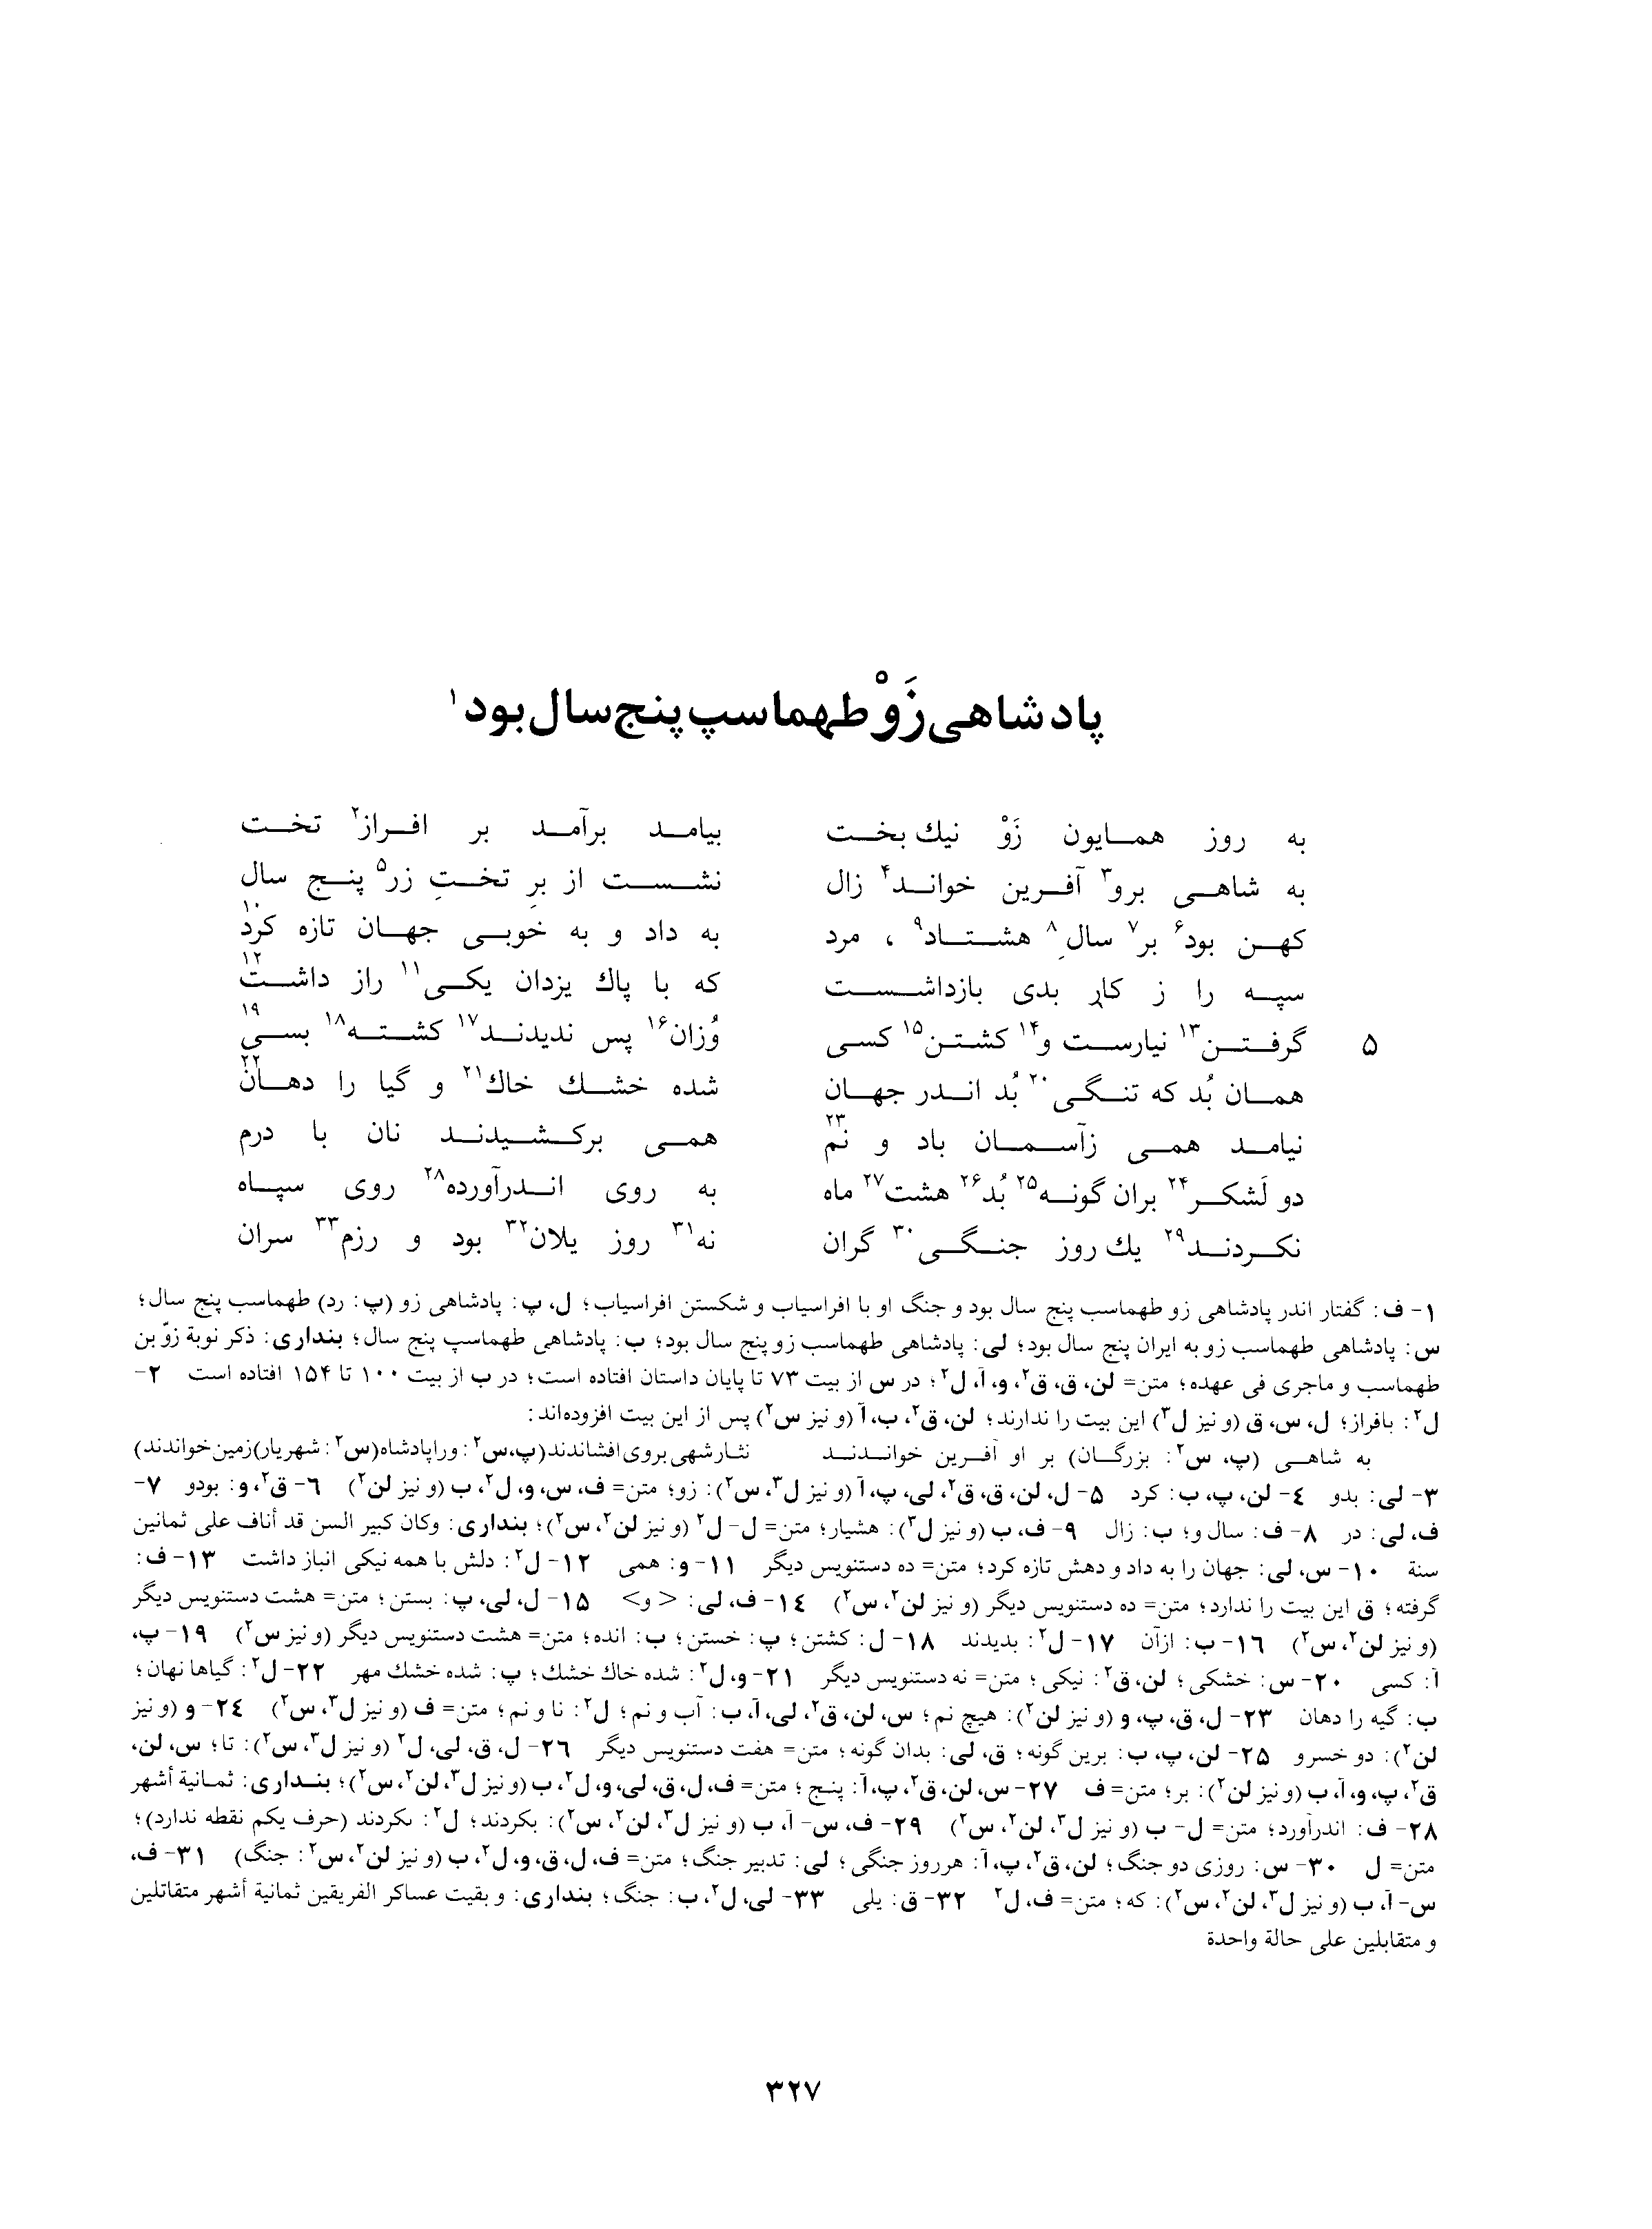 پادشاهی زَوْ طهماسپ پنج سال بود۱
به روز همایون زَوْ نیك بخت بیامد برآمد بر افراز۲ تخت
به شاهی برو۳ آفرین خواند۴ زال نشست از برِ تختِ زر۵ پنج سال
کهن بود۶ بر۷ سالِ۸ هشتاد۹، مرد به داد و به خوبی جهان تازه کرد۱۰
سپه را ز کارِ بدی بازداشست که با پاك یزدان یکی۱۱ راز داشت۱۲
۵ گرفتن۱۳ نیارست و۱۴ کشتن۱۵ کسی وُزان۱۶ پس ندیدند۱۷ کشته۱۸ بسی۱۹
همان بُد که تنگی۲۰ بُد اندر جهان شده خشك خاك۲۱ و گیا را دهان۲۲
نیامد همی زآسمان باد و نم۲۳ همی برکشیدند نان با درم
دو لَشکر۲۴ بران گونه۲۵ بُد۲۶ هشت۲۷ ماه به روی اندرآورده۲۸ روی سپاه
نکردند۲۹ یك روز جنگی۳۰ گران نه۳۱ روز یلان۳۲ بود و رزم۳۳ سران
۱- ف: گفتار اندر پادشاهی زو طهماسب پنج سال بود و جنگ او با افراسیاب و شکستن افراسیاب؛ ل، پ: پادشاهی زو (پ: رد) طهماسب پنج سال؛
س: پادشاهی طهماسب زو به ایران پنج سال بود؛ لی: پادشاهی طهماسب زو پنج سال بود؛ ب: پادشاهی طهماسپ پنج سال؛ بنداری: ذکر نوبة زوّ بن
طهماسب و ماجری فی عهده؛ متن= لن، ق، ق۲، و، آ، ل۲؛ در س از بیت ۷۳ تا پایان داستان افتاده است؛ در ب از بیت ۱۰۰ تا ۱۵۴ افتاده است ۲-
ل۲: بافراز؛ ل، س، ق (و نیز ل۳) این بیت را ندارند؛ لن، ق۲، ب، آ (و نیز س۲) پس از این بیت افزوده‌اند:
به شاهی (پ، س۲: بزرگان) بر او آفرین خواندند نثار شهی بروی افشاندند (پ، س۲: ورا پادشاه (س۲: شهریار) زمین خواندند)
۳- لی: بدو ٤- لن، پ، ب: کرد ۵- ل، لن، ق، ق۲، لی، پ، آ (و نیز ل۳، س۲): زو؛ متن= ف، س، و، ل۲، ب (و نیز لن۲) ٦- ق۲، و: بودو ۷-
ف، لی: در ۸- ف: سال و؛ ب: زال ۹- ف، ب (و نیز ل۳): هشیار؛ متن= ل- ل۲ (و نیز لن۲، س۲)؛ بنداری: وکان کبیر السن قد أناف علی ثمانین
سنة ۱۰- س، لی: جهان را به داد و دهش تازه کرد؛ متن= ده دستنویس دیگر ۱۱- و: همی ۱۲- ل۲: دلش با همه نیکی انباز داشت ۱۳- ف:
گرفته؛ ق این بیت را ندارد؛ متن= ده دستنویس دیگر (و نیز لن۲، س۲) ۱٤- ف، لی: < و> ۱۵- ل، لی، پ: بستن؛ متن= هشت دستنویس دیگر
(و نیز لن۲، س۲) ۱٦- ب: ازآن ۱۷- ل۲: بدیدند ۱۸- ل: کشتن؛ پ: خستن؛ ب: انده؛ متن= هشت دستنویس دیگر (و نیز س۲) ۱۹- پ،
آ: کسی ۲۰- س: خشکی؛ لن، ق۲: نیکی؛ متن= نه دستنویس دیگر ۲۱- و، ل۲: شده خاك خشك؛ پ: شده خشك مهر ۲۲- ل۲: گیاها نهان؛
ب: گیه را دهان ۲۳- ل، ق، پ، و (و نیز لن۲): هیچ نم؛ س، لن، ق۲، لی، آ، ب: آب و نم؛ ل۲: نا و نم؛ متن= ف (و نیز ل۳، س۲) ۲٤- و (و نیز
لن۲): دو خسرو ۲۵- لن، پ، ب: برین گونه؛ ق، لی: بدان گونه؛ متن= هفت دستنویس دیگر ۲٦- ل، ق، لی، ل۲ (و نیز ل۳، س۲): تا؛ س، لن،
ق۲، پ، و، آ، ب (و نیز لن۲): بر؛ متن= ف ۲۷- س، لن، ق۲، پ، آ: پنج؛ متن= ف، ل، ق، لی، و، ل۲، ب (و نیز ل۳، لن۲، س۲)؛ بنداری: ثمانیة أشهر
۲۸- ف: اندرآورد؛ متن= ل- ب (و نیز ل۳، لن۲، س۲) ۲۹- ف، س- آ، ب (و نیز ل۳، لن۲، س۲): بکردند؛ ل۲: ٮکردند (حرف یکم نقطه ندارد)؛
متن= ل ۳۰- س: روزی دو جنگ؛ لن، ق۲، پ، آ: هرروز جنگی؛ لی: تدبیر جنگ؛ متن= ف، ل، ق، و، ل۲، ب (و نیز لن۲، س۲: جنگ) ۳۱- ف،
س- آ، ب (و نیز ل۳، لن۲، س۲): که؛ متن= ف، ل۲ ۳۲- ق: یلی ۳۳- لی، ل۲، ب: جنگ؛ بنداری: و بقیت عساکر الفریقین ثمانیة أشهر متقاتلین
و متقابلین علی حالة واحدة
۳۲۷